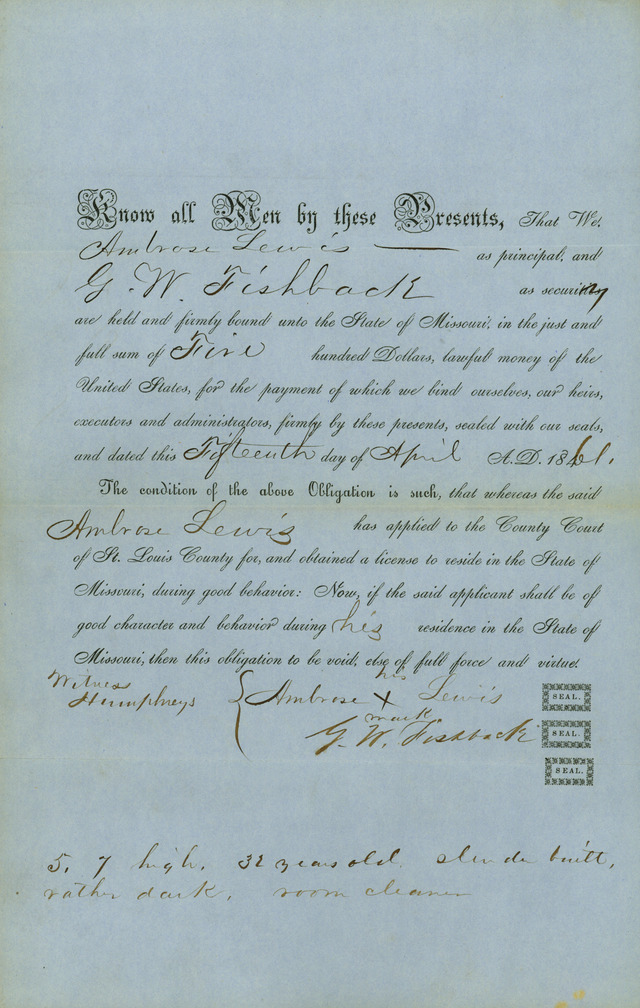 Know all Men by these Presents, That We,
Ambrose Lewis as principal, and
G. W. Fishback as security
are held and firmly bound unto the State of Missouri, in the just and
full sum of Five hundred Dollars, lawful money of the
United States, for the payment of which we bind ourselves, our heirs,
executors and administrators, firmly by these presents, sealed with our seals,
and dated this Fifteenth day of April A.D. 1861.
The condition of the above Obligation is such, that whereas the said
Ambrose Lewis has applied to the County Court
of St. Louis County for, and obtained a license to reside in the State of
Missouri, during good behavior: Now, if the said applicant shall be of
good character and behavior during his residence in the State of
Missouri, then this obligation to be void, else of full force and virtue.
Witness
Humphreys
his
Ambrose X Lewis SEAL.
mark
G. W. Fishback SEAL.
SEAL.
5, 7 high, 32 years old, slender built,
rather dark, room cleaner